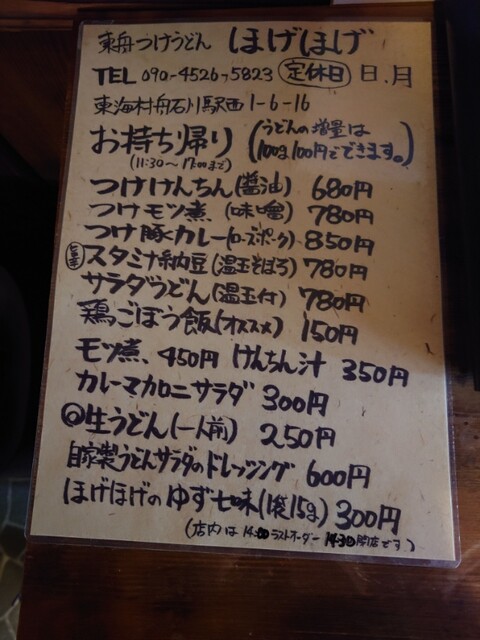 東舟つけうどん ほげほげ
TEL 090-4526-5823 定休日 日、月
東海村舟石川駅西1-6-16
お持ち帰り (うどんの増量は
(11:30〜17:00まで) 100g100円でできます。)
つけけんちん(醤油) 680円
つけモツ煮 (味噌) 780円
つけ豚カレー(ローズポーク) 850円
旨辛 スタミナ納豆(温玉そぼろ) 780円
サラダうどん(温玉付) 780円
鶏ごぼう飯(オススメ) 150円
モツ煮、450円 けんちん汁 350円
カレーマカロニサラダ 300円
@生うどん(一人前) 250円
自家製うどんサラダのドレッシング 600円
ほげほげの ゆず七味(1袋15g) 300円
(店内は 14:00 ラストオーダー 14:30 閉店です)